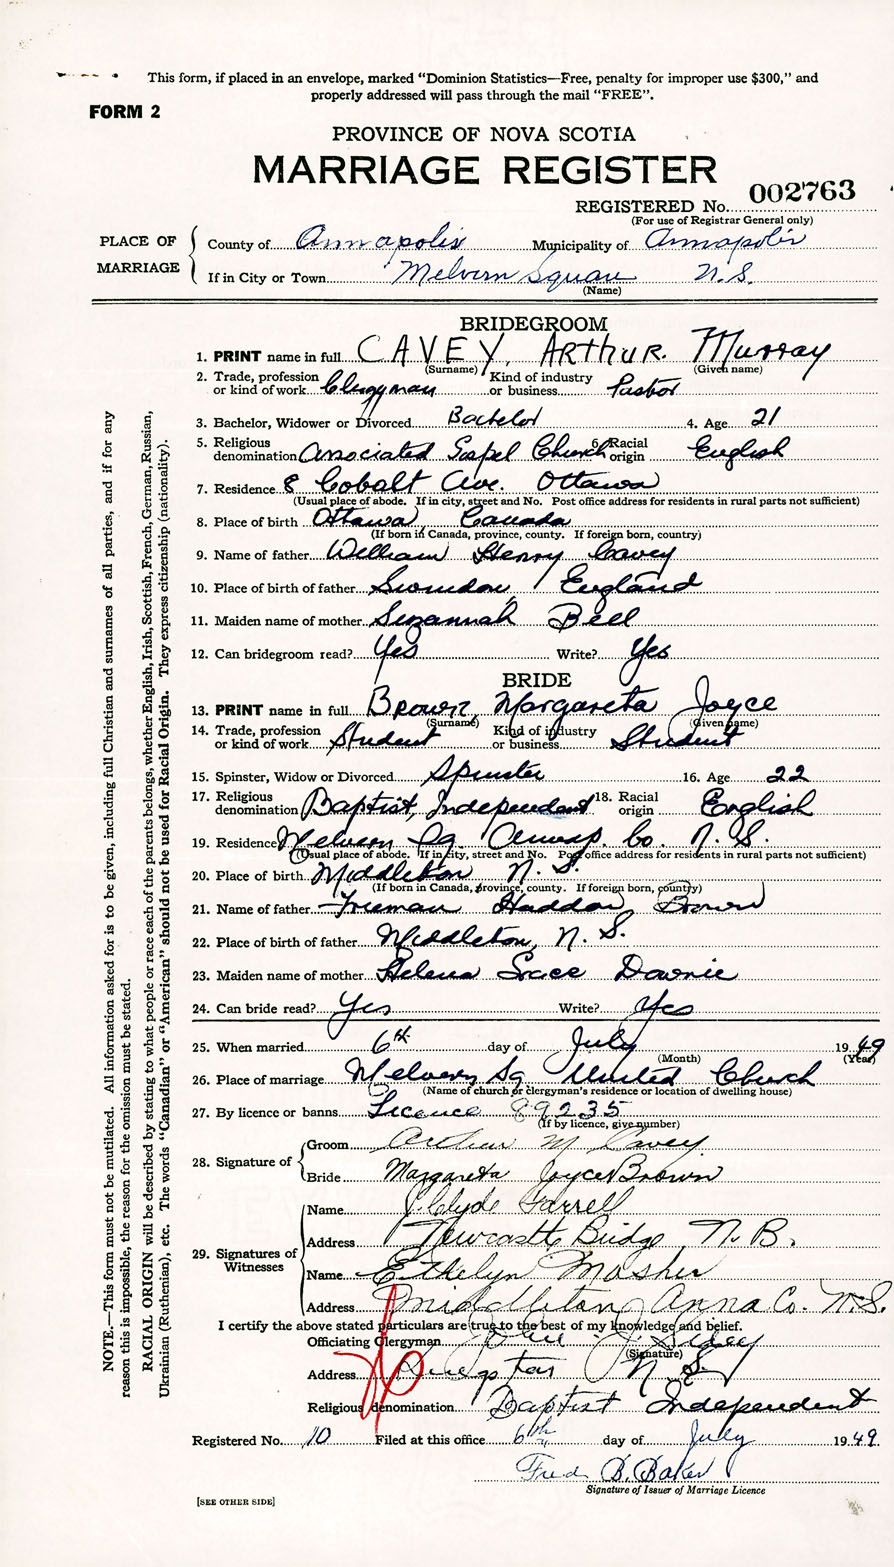 This form, if placed in an envelope, marked "Dominion Statistics—Free, penalty for improper use $300," and
properly addressed will pass through the mail "FREE".
FORM 2
PROVINCE OF NOVA SCOTIA
MARRIAGE REGISTER
REGISTERED No. 002763
(For use of Registrar General only)
PLACE OF MARRIAGE
County of Annapolis Municipality of Annapolis
If in City or Town Melvern Square N.S.
(Name)
BRIDEGROOM
1. PRINT name in full CAVEY, ARTHUR. Murray
(Surname) (Given name)
2. Trade, profession or kind of work Clergyman Kind of industry or business Pastor
3. Bachelor, Widower or Divorced Bachelor 4. Age 21
5. Religious denomination Associated Gospel Church 6. Racial origin English
7. Residence 8 Cobalt Ave. Ottawa
(Usual place of abode. If in city, street and No. Post office address for residents in rural parts not sufficient)
8. Place of birth Ottawa, Canada
(If born in Canada, province, county. If foreign born, country)
9. Name of father William Henry Cavey
10. Place of birth of father Swindon, England
11. Maiden name of mother Suzannah Bell
12. Can bridegroom read? Yes Write? Yes
BRIDE
13. PRINT name in full Brown, Margareta Joyce
(Surname) (Given name)
14. Trade, profession or kind of work Student Kind of industry or business Student
15. Spinster, Widow or Divorced Spinster 16. Age 22
17. Religious denomination Baptist, Independent 18. Racial origin English
19. Residence Melvern Sq. Annap. Co. N.S.
(Usual place of abode. If in city, street and No. Post office address for residents in rural parts not sufficient)
20. Place of birth Middleton N.S.
(If born in Canada, province, county. If foreign born, country)
21. Name of father Freeman Haddon Brown
22. Place of birth of father Middleton, N.S.
23. Maiden name of mother Helena Grace Downie
24. Can bride read? Yes Write? Yes
25. When married 6th day of July 1949
(Month) (Year)
26. Place of marriage Melvern Sq United Church
(Name of church or clergyman's residence or location of dwelling house)
27. By licence or banns Licence 89235
(If by licence, give number)
28. Signature of
Groom Arthur M Cavey
Bride Margareta Joyce Brown
29. Signatures of Witnesses
Name J. Clyde Farrell
Address Newcastle Bridge, N.B.
Name Ethelyn Mosher
Address Middleton, Anna Co. N.S.
I certify the above stated particulars are true to the best of my knowledge and belief.
Officiating Clergyman John J. Sidey
(Signature)
Address Kingston N.S.
Religious denomination Baptist Independent
Registered No. 10 Filed at this office 6th day of July 1949
Fred B. Baker
Signature of Issuer of Marriage Licence
[SEE OTHER SIDE]
NOTE.—This form must not be mutilated. All information asked for is to be given, including full Christian and surnames of all parties, and if for any
reason this is impossible, the reason for the omission must be stated.
RACIAL ORIGIN will be described by stating to what people or race each of the parents belongs, whether English, Irish, Scottish, French, German, Russian,
Ukrainian (Ruthenian), etc. The words "Canadian" or "American" should not be used for Racial Origin. They express citizenship (nationality).